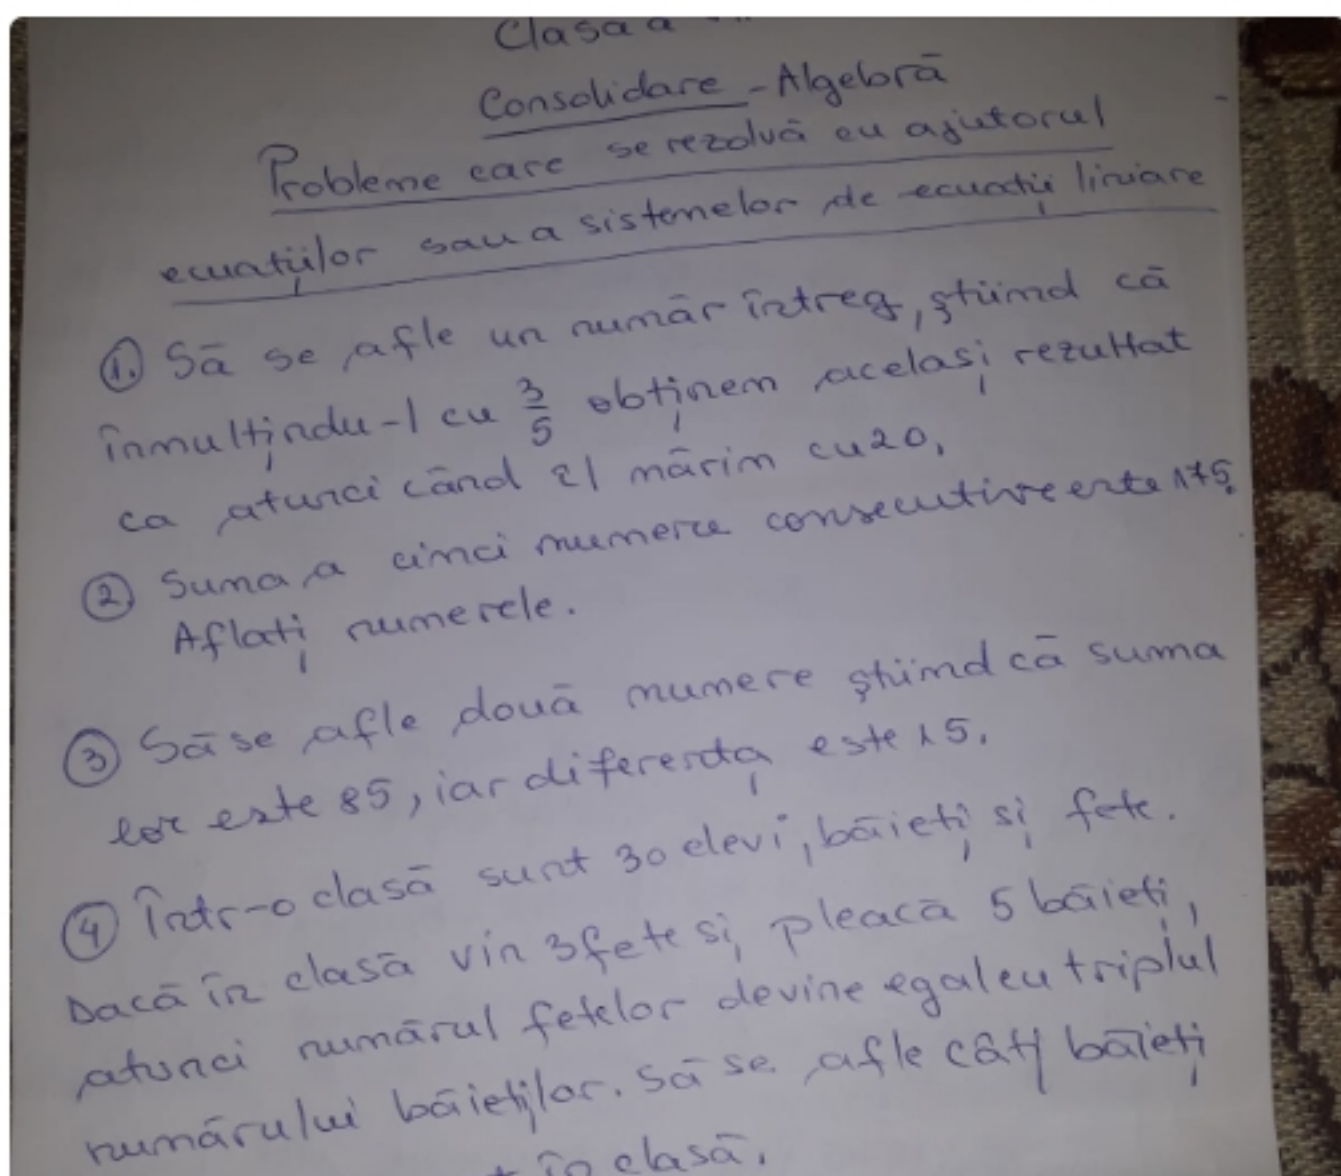 Clasa a
Consolidare - Algebră
Probleme care se rezolvă cu ajutorul
ecuațiilor sau a sistemelor de ecuații liniare
1. Să se afle un număr întreg, știind că
înmulțindu-l cu 3/5 obținem același rezultat
ca atunci când îl mărim cu 20.
2 Suma a cinci numere consecutive este 175.
Aflați numerele.
3 Să se afle două numere știind că suma
lor este 85, iar diferența este 15.
4 Într-o clasă sunt 30 elevi, băieți și fete.
Dacă în clasă vin 3 fete și pleacă 5 băieți,
atunci numărul fetelor devine egal cu triplul
numărului băieților. Să se afle câți băieți
în clasă.